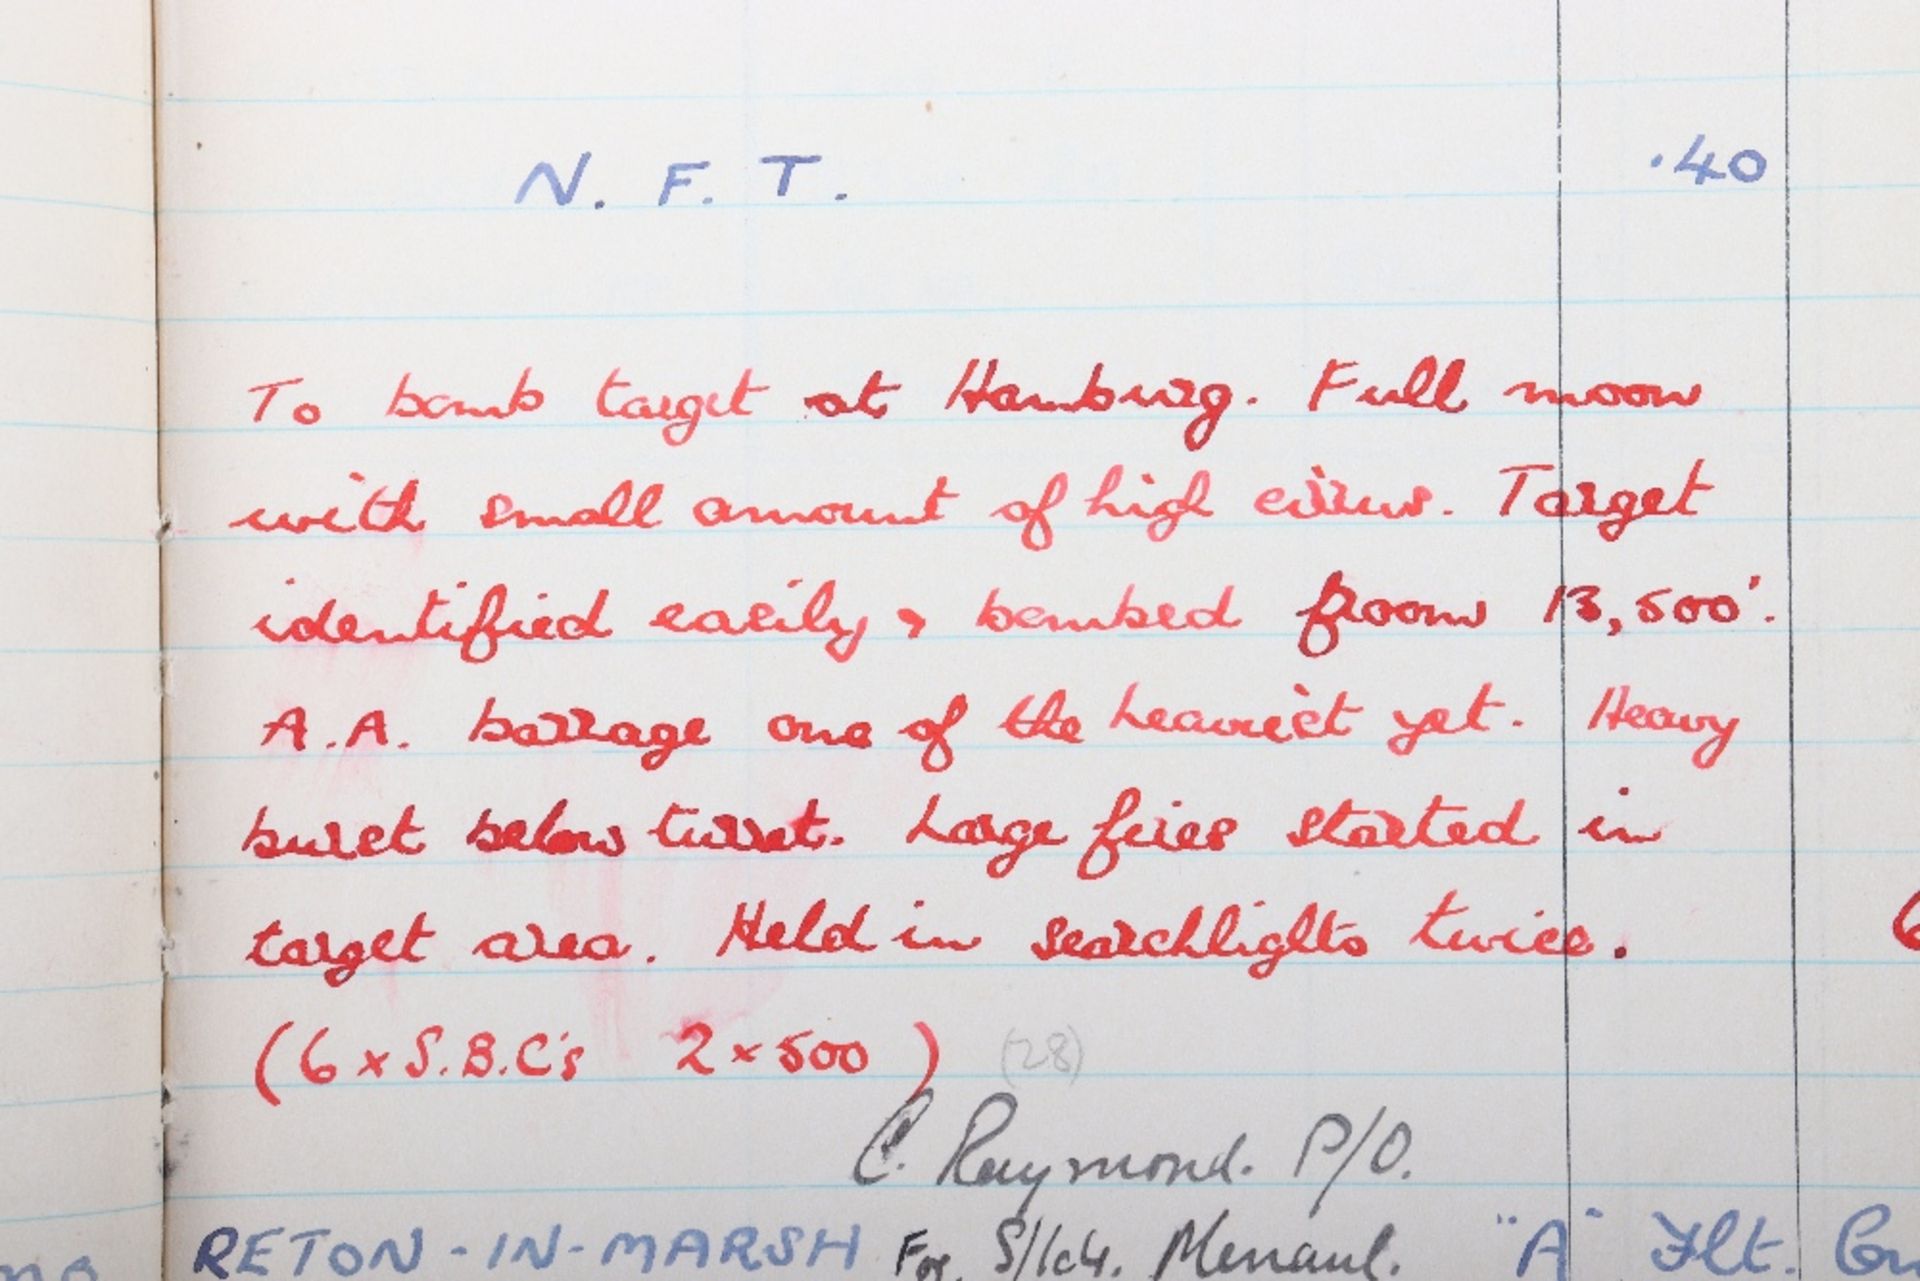 N. F. T. .40
To bomb target at Hamburg. Full moon
with small amount of high cirrus. Target
identified easily, bombed from 13,500'.
A.A. barrage one of the heaviest yet. Heavy
burst below turret. Large fires started in
target area. Held in searchlights twice. 6
(6 x S.B.C's 2 x 500) (28)
C. Raymond. P/O.
RETON-IN-MARSH For S/Ldr. Menaul. "A" Flt.